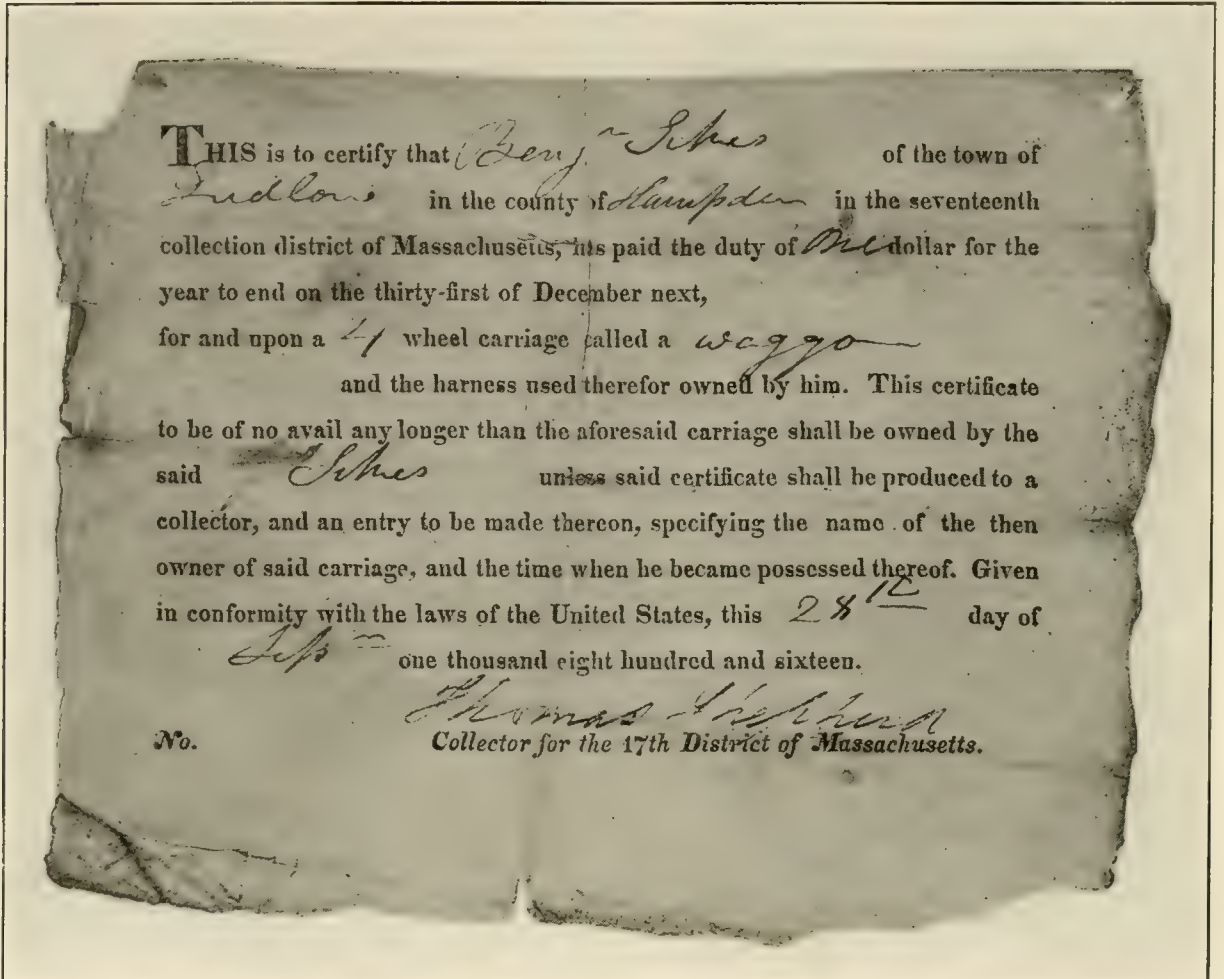 THIS is to certify that Benjn Sikes of the town of
Ludlow in the county of Hampden in the seventeenth
collection district of Massachusetts, has paid the duty of One dollar for the
year to end on the thirty-first of December next,
for and upon a 4 wheel carriage called a waggon
and the harness used therefor owned by him. This certificate
to be of no avail any longer than the aforesaid carriage shall be owned by the
said Sikes unless said certificate shall be produced to a
collector, and an entry to be made thereon, specifying the name of the then
owner of said carriage, and the time when he became possessed thereof. Given
in conformity with the laws of the United States, this 28th day of
one thousand eight hundred and sixteen.
Thomas Shepherd
No. Collector for the 17th District of Massachusetts.